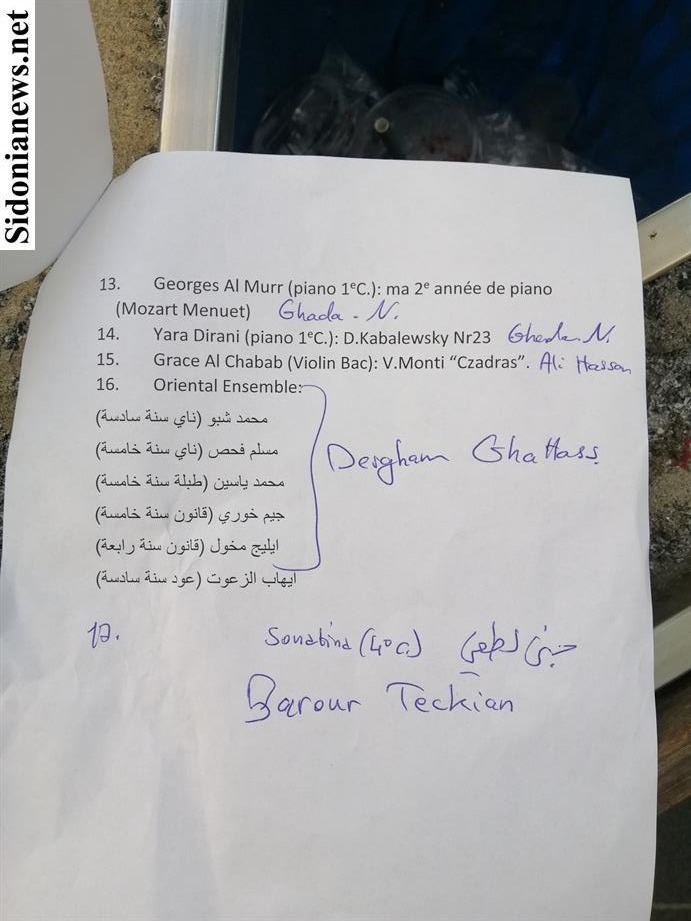 Sidonianews.net
13. Georges Al Murr (piano 1ᵉC.): ma 2ᵉ année de piano
(Mozart Menuet) Ghada - N.
14. Yara Dirani (piano 1ᵉC.): D.Kabalewsky Nr23 Ghada N.
15. Grace Al Chabab (Violin Bac): V.Monti “Czadras”. Ali Hassan
16. Oriental Ensemble:
محمد شبو (ناي سنة سادسة)
مسلم فحص (ناي سنة خامسة)
Dergham Ghattass
محمد ياسين (طبلة سنة خامسة)
جيم خوري (قانون سنة خامسة)
ايليج مخول (قانون سنة رابعة)
ايهاب الزعوت (عود سنة سادسة)
17. Sonatina (4ᵒ C.)
Barour Teckian